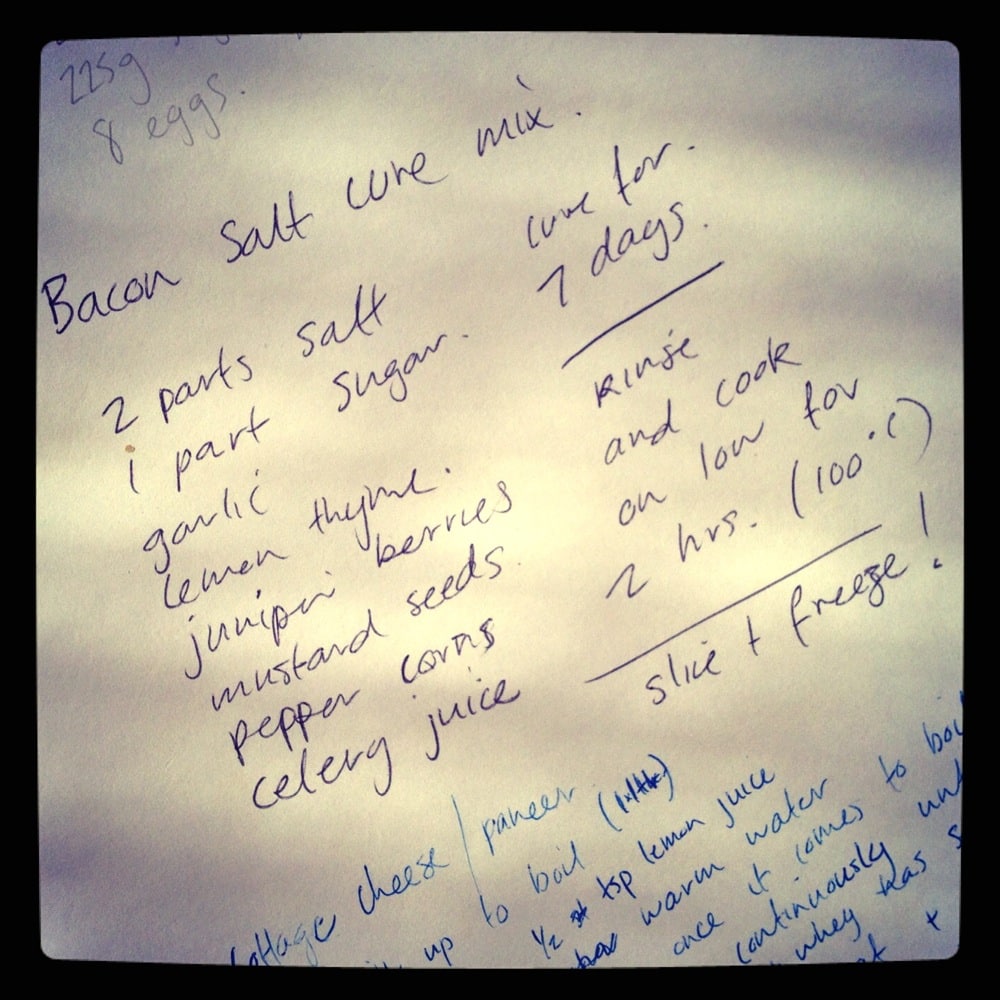 225g
8 eggs.
Bacon Salt cure mix.
2 parts salt
1 part sugar.
garlic
lemon thyme
juniper berries
mustard seeds
pepper corns
celery juice
cure for.
7 days.
Rinse
and cook
on low for
2 hrs. (100°C)
slice + freeze!
cottage cheese / paneer
up to boil
1/2 tsp lemon juice
warm water
once it comes to boil
continuously
whey has
+